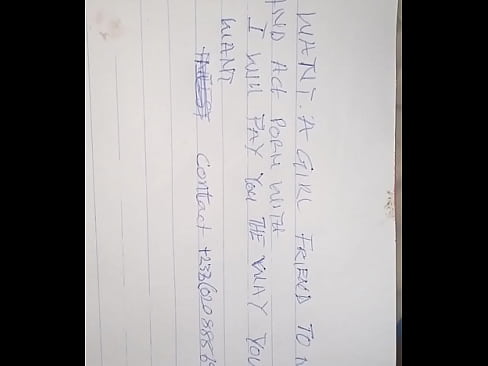 WANT. A GIRL FRIEND TO
AND ACT PORN WITH
I WILL PAY YOU THE WAY YOU
WANT
Contact +232(0)